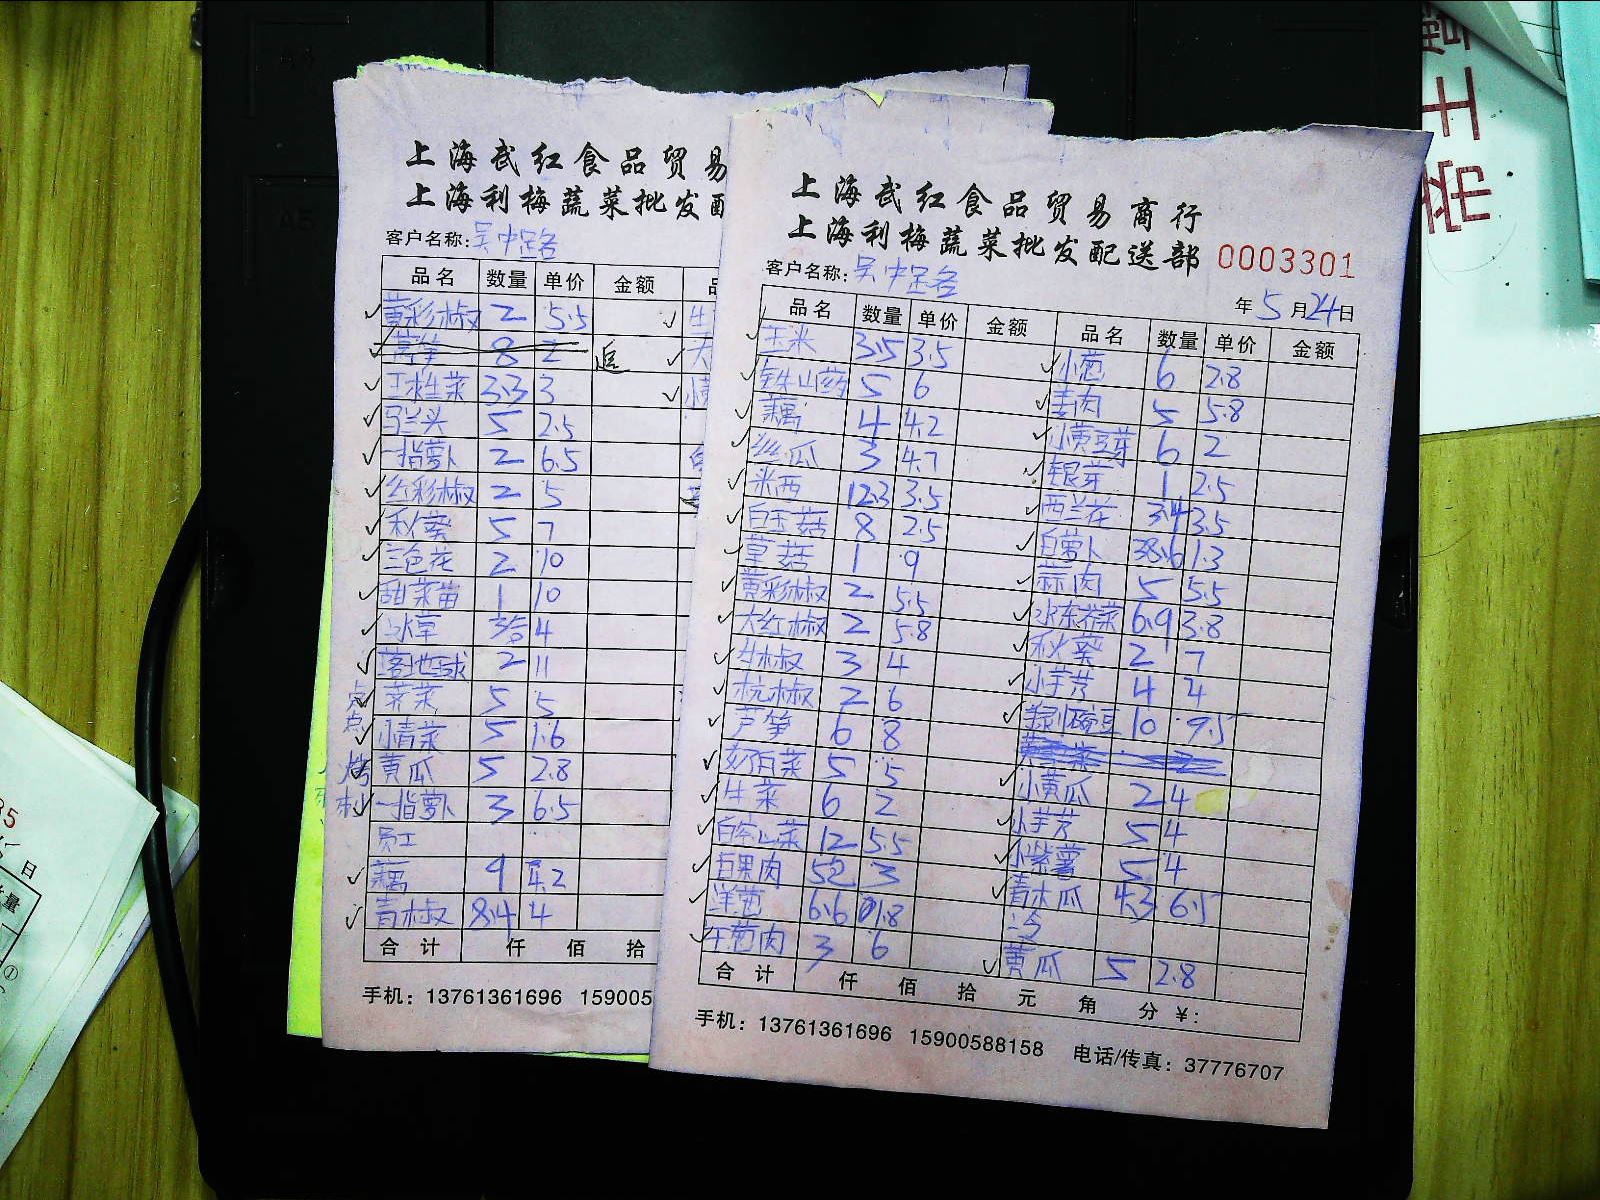 上海武红食品贸易
上海利梅蔬菜批发配
客户名称:吴中路名
品名 数量 单价 金额
黄彩椒 2 5.5
莴笋 8 2 退
工杭生菜 3.3 3
马兰头 5 2.5
一指萝卜 2 6.5
红彩椒 2 5
秋葵 5 7
三色花 2 10
甜菜苗 1 10
冰草 3合 4
落地球 2 11
荠菜 5 5
小青菜 5 1.6
黄瓜 5 2.8
一指萝卜 3 6.5
点点
员工
藕 9 4.2
青椒 8.4 4
合计 仟 佰 拾
手机：13761361696 159005
上海武红食品贸易商行
上海利梅蔬菜批发配送部 0003301
客户名称:
年5月24日
品名 数量 单价 金额 品名 数量 单价 金额
玉米 3.5 3.5 小葱 6 2.8
铁山药 5 6 姜肉 5 5.8
藕 4 4.2 小黄豆芽 6 2
丝瓜 3 4.7 银芽 1 2.5
米西 12.3 3.5 西兰花 3.4 3.5
白玉菇 8 2.5 白萝卜 38.6 1.3
草菇 1 9 蒜肉 5 5.5
黄彩椒 2 5.5 水东芥菜 6.9 3.8
大红椒 2 5.8 秋葵 2 7
牛椒 3 4 小芋艿 4 4
杭椒 2 6 豌豆 10 9.5
芦笋 6 8
奶白菜 5 5 小黄瓜 2 4
生菜 6 2 小芋艿 5 4
白 山菜 12 5.5 小紫薯 5 4
白果肉 52 3 青木瓜 4.3 6.5
洋葱 6.6 1.8 冷
干葱肉 3 6 黄瓜 5 2.8
合计 仟 佰 拾 元 角 分 ¥:
手机：13761361696 15900588158 电话/传真：37776707